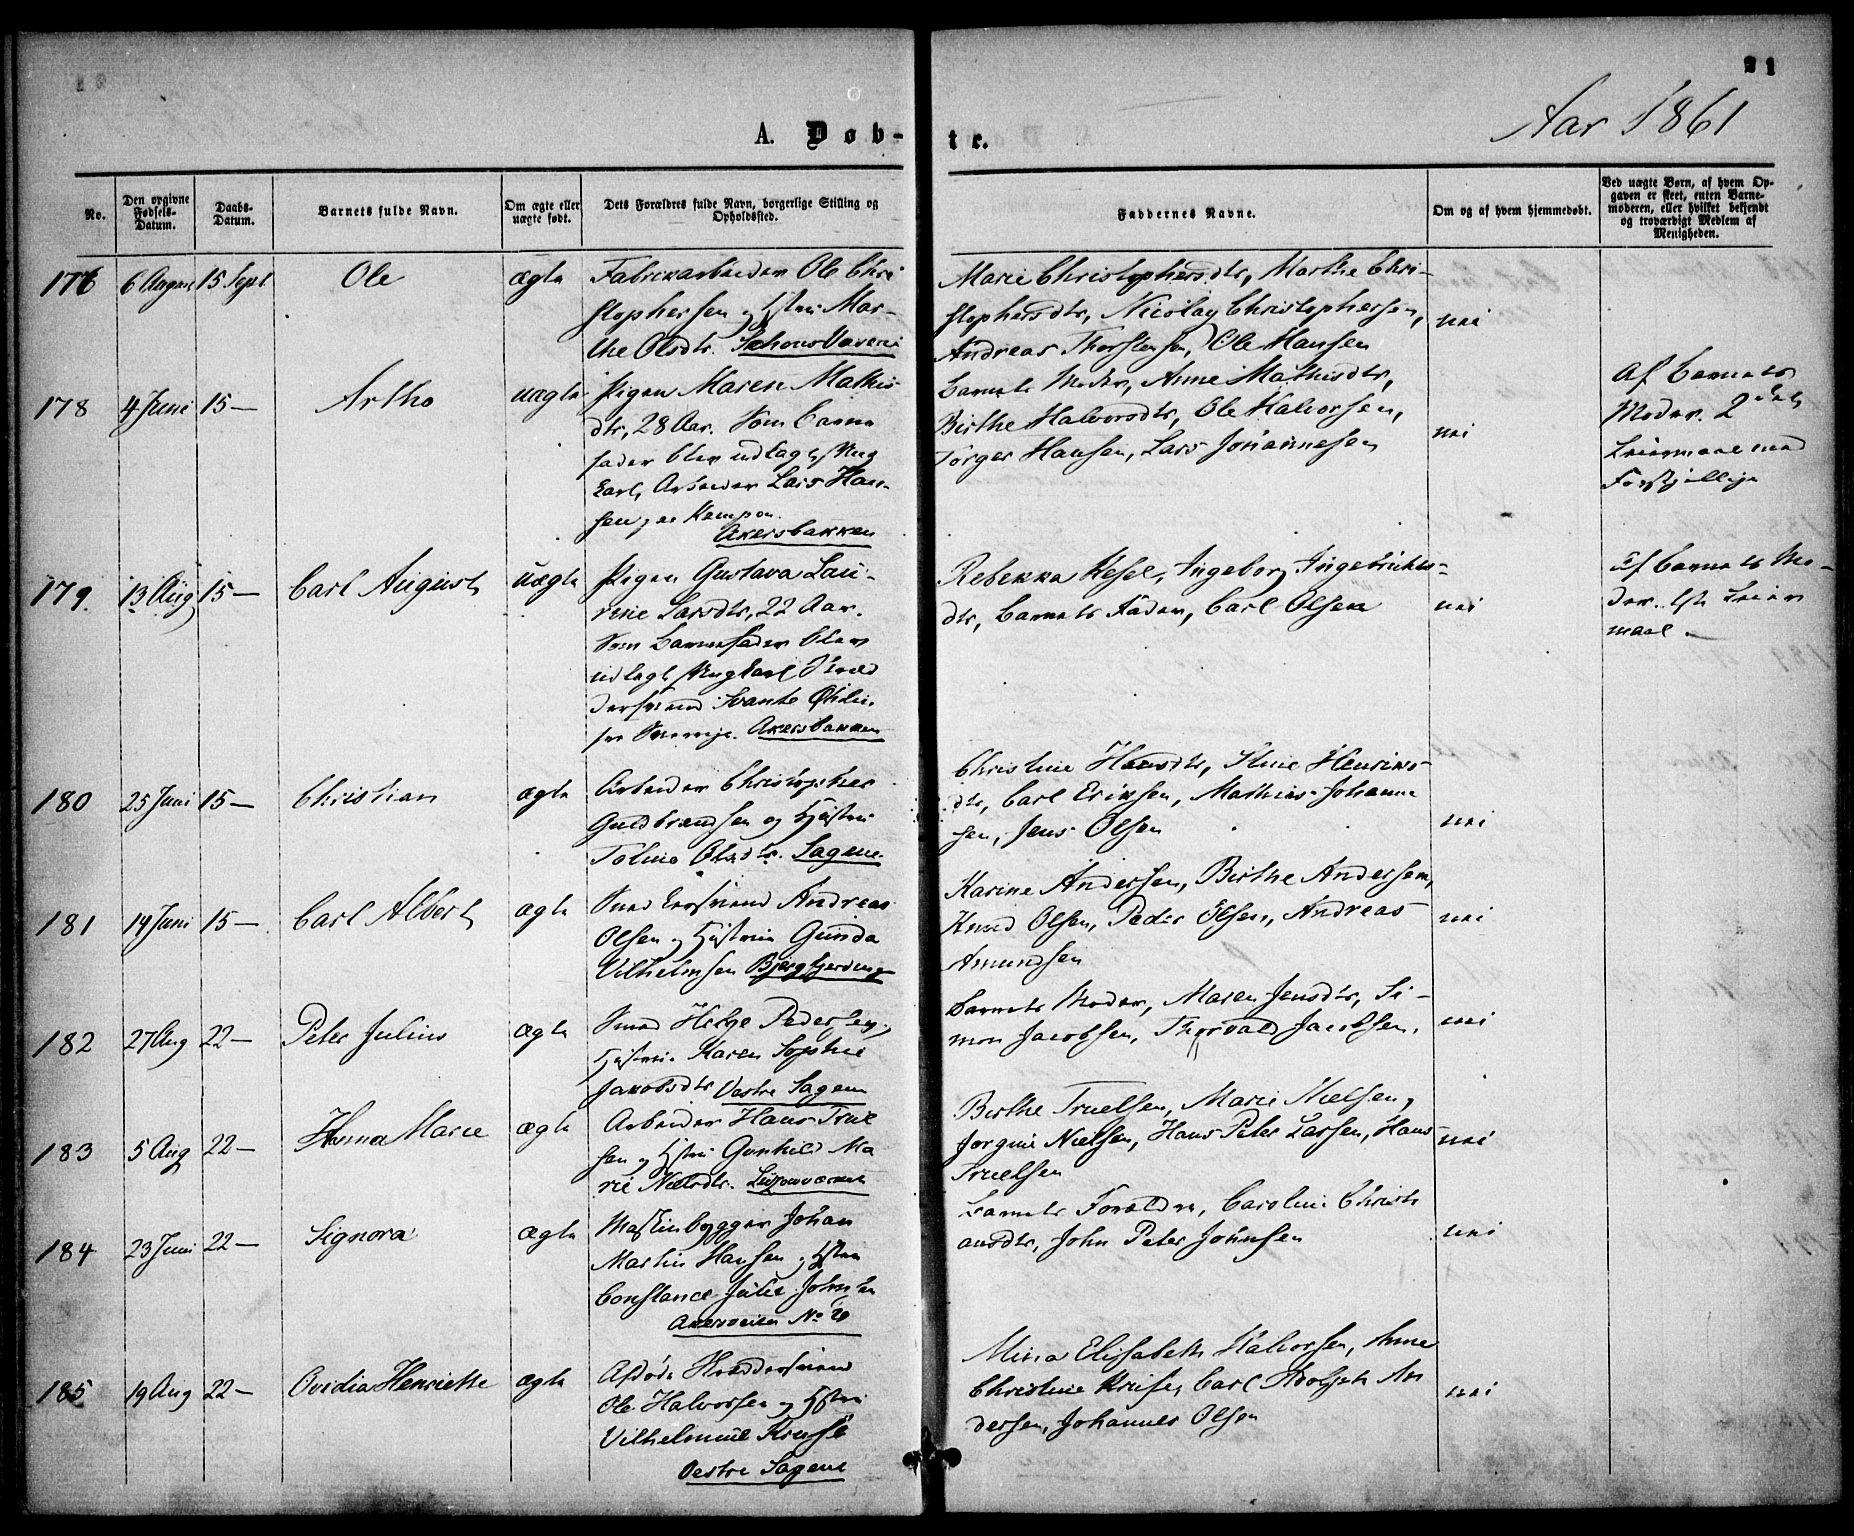 21
Aar 1861
A. Døb-
te.
No.
Den opgivne
Fødsels-
Datum.
Daabs-
Datum.
Barnets fulde Navn.
Om ægte eller
uægte født.
Dets Forældres fulde Navn, borgerlige Stilling og
Opholdssted.
Faddernes Navne.
Om og af hvem hjemmedøbt.
Ved uægte Børn, af hvem Op-
gaven er skeet, enten Barne-
moderen, eller hvilket bekjendt
og troværdigt Medlem af
Menigheden.
176 6 August 15 Sept Ole ægte
Fabrikarbeider Ole Chri
stophersen og Hstru Mar-
the Olsdtr. Schous Væveri
Marie Christophersdtr, Marthe Chri-
stophersdtr, Nicolay Christophersen,
Andreas Thorstensen, Ole Hansen
nei
178 4 Juni 15— Artho uægte
Pigen Maren Mathis-
dtr, 28 Aar. Som Barne
fader blev udlagt Ung
karl, Arbeider Lars Han-
sen, Kampen.
Akersbakken
Barnets Moder, Anne Mathisdtr,
Birthe Halvorsdtr, Ole Halvorsen,
Torger Hansen, Lars Johannesen
nei
Af Barnets
Moder. 2det
Leiermaal med
Forskjellige
179. 13 Aug 15— Carl August uægte
Pigen Gustava Lau-
rene Larsdtr, 22 Aar.
Som Barnefader blev
udlagt Ungkarl Skræd
dersvend Svante
fra Sverrige. Akersbakken
Rebekka Kesel, Ingeborg Ingebrigts-
dtr, Barnets Fader, Carl Olsen
nei
Af Barnets Mo-
der. 1ste Leier
maal.
180 25 Juni 15— Christian ægte
Arbeider Christopher
Guldbrandsen og Hustru
Toline Olsdtr. Sagene.
Christine Hansdtr, Stine Henriks-
dtr, Carl Eriksen, Mathias Johanne
sen, Jens Olsen
nei
181 14 Juni 15— Carl Albert ægte
Andreas
Olsen og Hustru Gunda
Vilhelmsen Bjergfjerding
Karine Andersen, Birthe Andersen,
Knud Olsen, Peder Olsen, Andreas
Amundsen
nei
182 27 Aug 22— Peter Julius ægte
Smed Helge Pedersen,
Hustru Karen Sophie
Jakobsdtr Vestre Sagene
Barnets Moder, Maren Jensdtr, Si-
mon Jacobsen, Thorvald Jacobsen.
nei
183 5 Aug 22— Hanna Marie ægte
Arbeider Hans Truel
sen og Hstru Gunhild Ma
rie Nielsdtr.
Birthe Truelsen, Marie Nielsen,
Jorgine Nielsen, Hans Peter Larsen, Hans
Truelsen
nei
184 23 Juni 22— Signora ægte
Maskinbygger Johan
Martin Hansen, Hstru
Constance Julie Johnsen
Akersveien No 20
Barnets Forældre, Caroline Christi
ansdtr, John Peter Johnsen
nei
185 19 Aug 22— Ovidia Henriette ægte
Afdøde Skræddersvend
Ole Halvorsen og Hstru
Vilhelmine Kruse
Vestre Sagene
Mina Elisabeth Halvorsen, Anne
Christine Kruse, Carl Adolph An
dersen, Johannes Olsen
nei